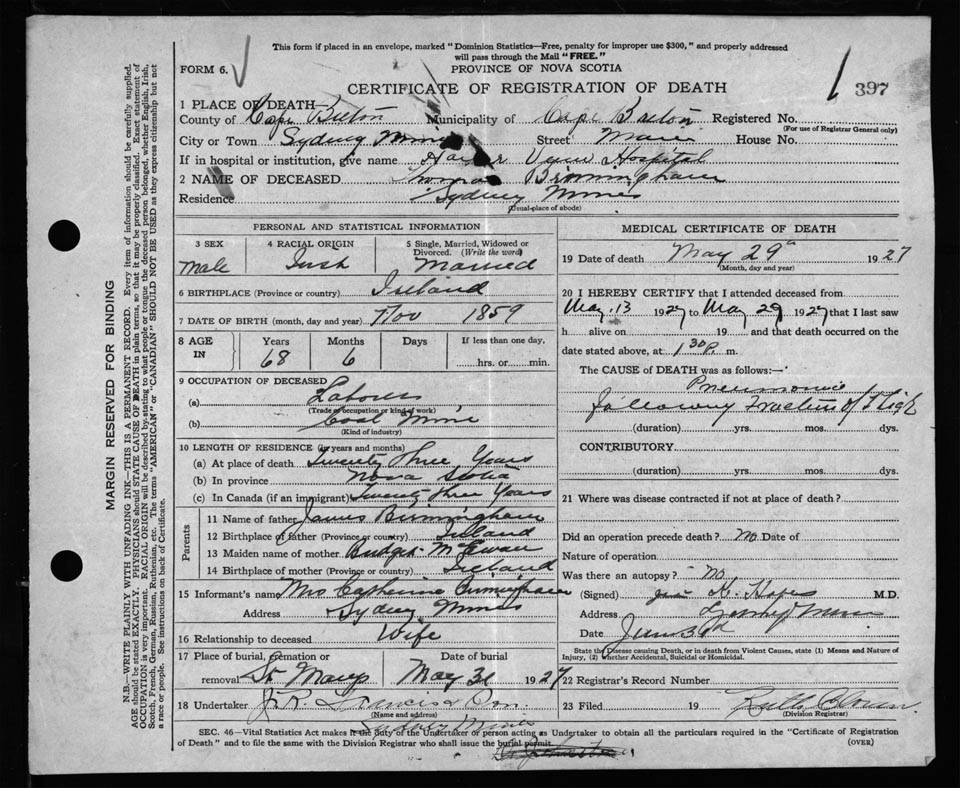 This form if placed in an envelope, marked "Dominion Statistics—Free, penalty for improper use $300," and properly addressed
will pass through the Mail "FREE."
FORM 6.
PROVINCE OF NOVA SCOTIA
CERTIFICATE OF REGISTRATION OF DEATH
397
1 PLACE OF DEATH—
County of Cape Breton Municipality of Cape Breton Registered No.
(For use of Registrar General only)
City or Town Sydney Mines Street Main House No.
If in hospital or institution, give name Harbor View Hospital
2 NAME OF DECEASED Thomas Birmingham
Residence Sydney Mines
(Usual place of abode)
PERSONAL AND STATISTICAL INFORMATION
3 SEX
Male
4 RACIAL ORIGIN
Irish
5 Single, Married, Widowed or
Divorced. (Write the word)
Married
6 BIRTHPLACE (Province or country) Ireland
7 DATE OF BIRTH (month, day and year) Nov 1859
8 AGE
IN
Years
68
Months
6
Days
If less than one day,
hrs. or min.
9 OCCUPATION OF DECEASED
(a) Laborer
(Trade or occupation or kind of work)
(b) Coal Mine
(Kind of industry)
10 LENGTH OF RESIDENCE (in years and months)
(a) At place of death Twenty three Years
(b) In province Nova Scotia
(c) In Canada (if an immigrant) Twenty three Years
Parents
11 Name of father James Birmingham
12 Birthplace of father (Province or country) Ireland
13 Maiden name of mother Bridget
14 Birthplace of mother (Province or country) Ireland
15 Informant's name Mrs Catherine Birmingham
Address Sydney Mines
16 Relationship to deceased Wife
17 Place of burial, Cremation or
removal St. Marys
Date of burial
May 31 1927
18 Undertaker J. R. Francis & Son.
(Name and address)
Sydney Mines
MEDICAL CERTIFICATE OF DEATH
19 Date of death May 29th 1927
(Month, day and year)
20 I HEREBY CERTIFY that I attended deceased from
May. 13 1927 to May 29 1927 that I last saw
h alive on 19 and that death occurred on the
date stated above, at 1 30 P. m.
The CAUSE of DEATH was as follows:—
Pneumonia
following Fracture of Thigh
(duration) yrs. mos. dys.
CONTRIBUTORY.
(duration) yrs. mos. dys.
21 Where was disease contracted if not at place of death?
Did an operation precede death? No Date of
Nature of operation
Was there an autopsy? No
(Signed) M.D.
Address Sydney Mines
Date June 3rd
State the Disease causing Death, or in death from Violent Causes, state (1) Means and Nature of
Injury, (2) whether Accidental, Suicidal or Homicidal.
22 Registrar's Record Number
23 Filed 19
(Division Registrar)
SEC. 46—Vital Statistics Act makes it the duty of the Undertaker or person acting as Undertaker to obtain all the particulars required in the "Certificate of Registration
of Death" and to file the same with the Division Registrar who shall issue the burial permit.
(OVER)
MARGIN RESERVED FOR BINDING
N.B.—WRITE PLAINLY WITH UNFADING INK—THIS IS A PERMANENT RECORD. Every item of information should be carefully supplied.
AGE should be stated EXACTLY. PHYSICIANS should STATE CAUSE OF DEATH in plain terms, so that it may be properly classified. Exact statement of
OCCUPATION is very important. RACIAL ORIGIN will be described by stating to what people or tongue the deceased person belonged, whether English, Irish,
Scotch, French, German, Russian, Ruthenian, etc. The terms "AMERICAN" or "CANADIAN" SHOULD NOT BE USED as they express citizenship but not
a race or people. See instructions on back of Certificate.